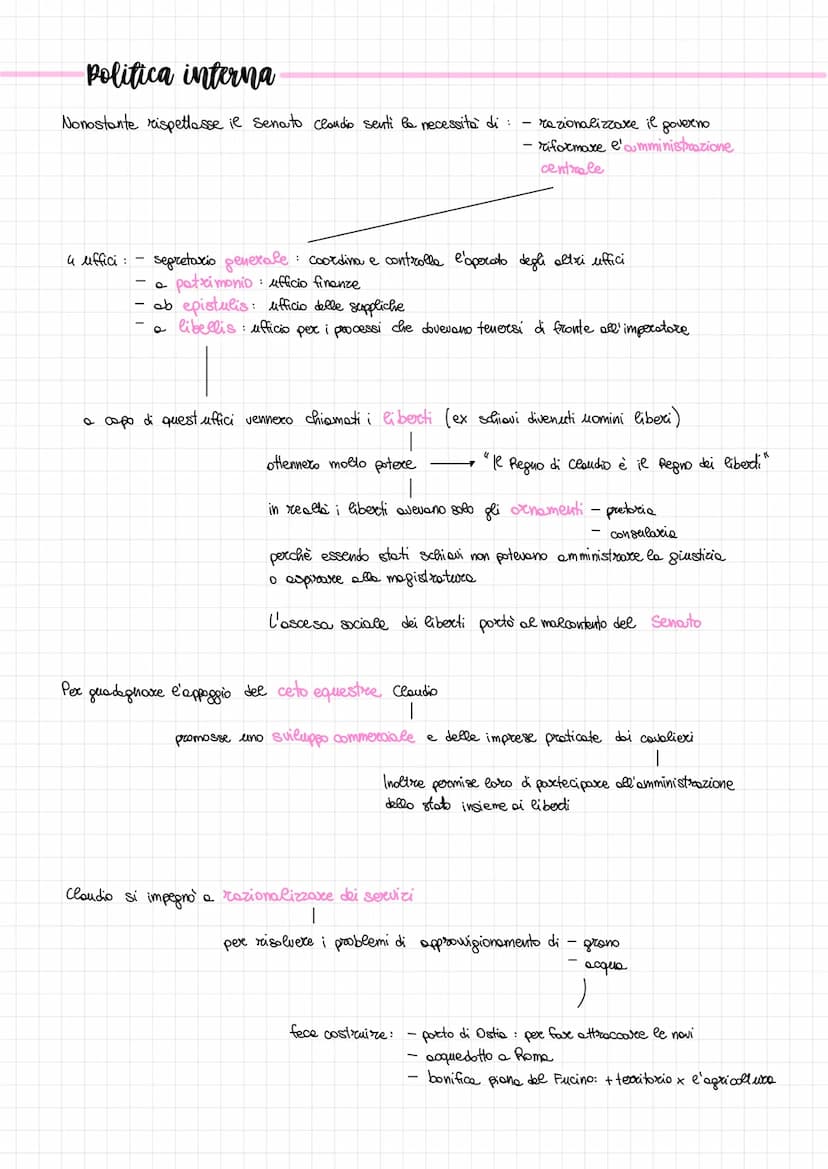 Politica interna
Nonostante rispettasse il Senato Claudio sentì la necessità di : - razionalizzare il governo
- riformare l'amministrazione
centrale
4 uffici : - segretario generale : coordina e controlla l'operato degli altri uffici
- a patrimonio : ufficio finanze
- ab epistulis : ufficio delle suppliche
- a libellis : ufficio per i processi che dovevano tenersi di fronte all'imperatore
a capo di quest uffici vennero chiamati i liberti (ex schiavi divenuti uomini liberi)
ottennero molto potere → "Il Regno di Claudio è il Regno dei liberti"
in realtà i liberti avevano solo gli ornamenti - pretoria
- consolaria
perchè essendo stati schiavi non potevano amministrare la giustizia
o aspirare alla magistratura
L'ascesa sociale dei liberti portò al malcontento del Senato
Per guadagnare l'appoggio del ceto equestre Claudio
promosse uno sviluppo commerciale e delle imprese praticate dai cavalieri
Inoltre permise loro di partecipare all'amministrazione
dello stato insieme ai liberti
Claudio si impegnò a razionalizzare dei servizi
per risolvere i problemi di approvvigionamento di - grano
- acqua
fece costruire: - porto di Ostia : per fare attraccare le navi
- acquedotto a Roma
- bonifica piana del Fucino: + territorio x l'agricoltura